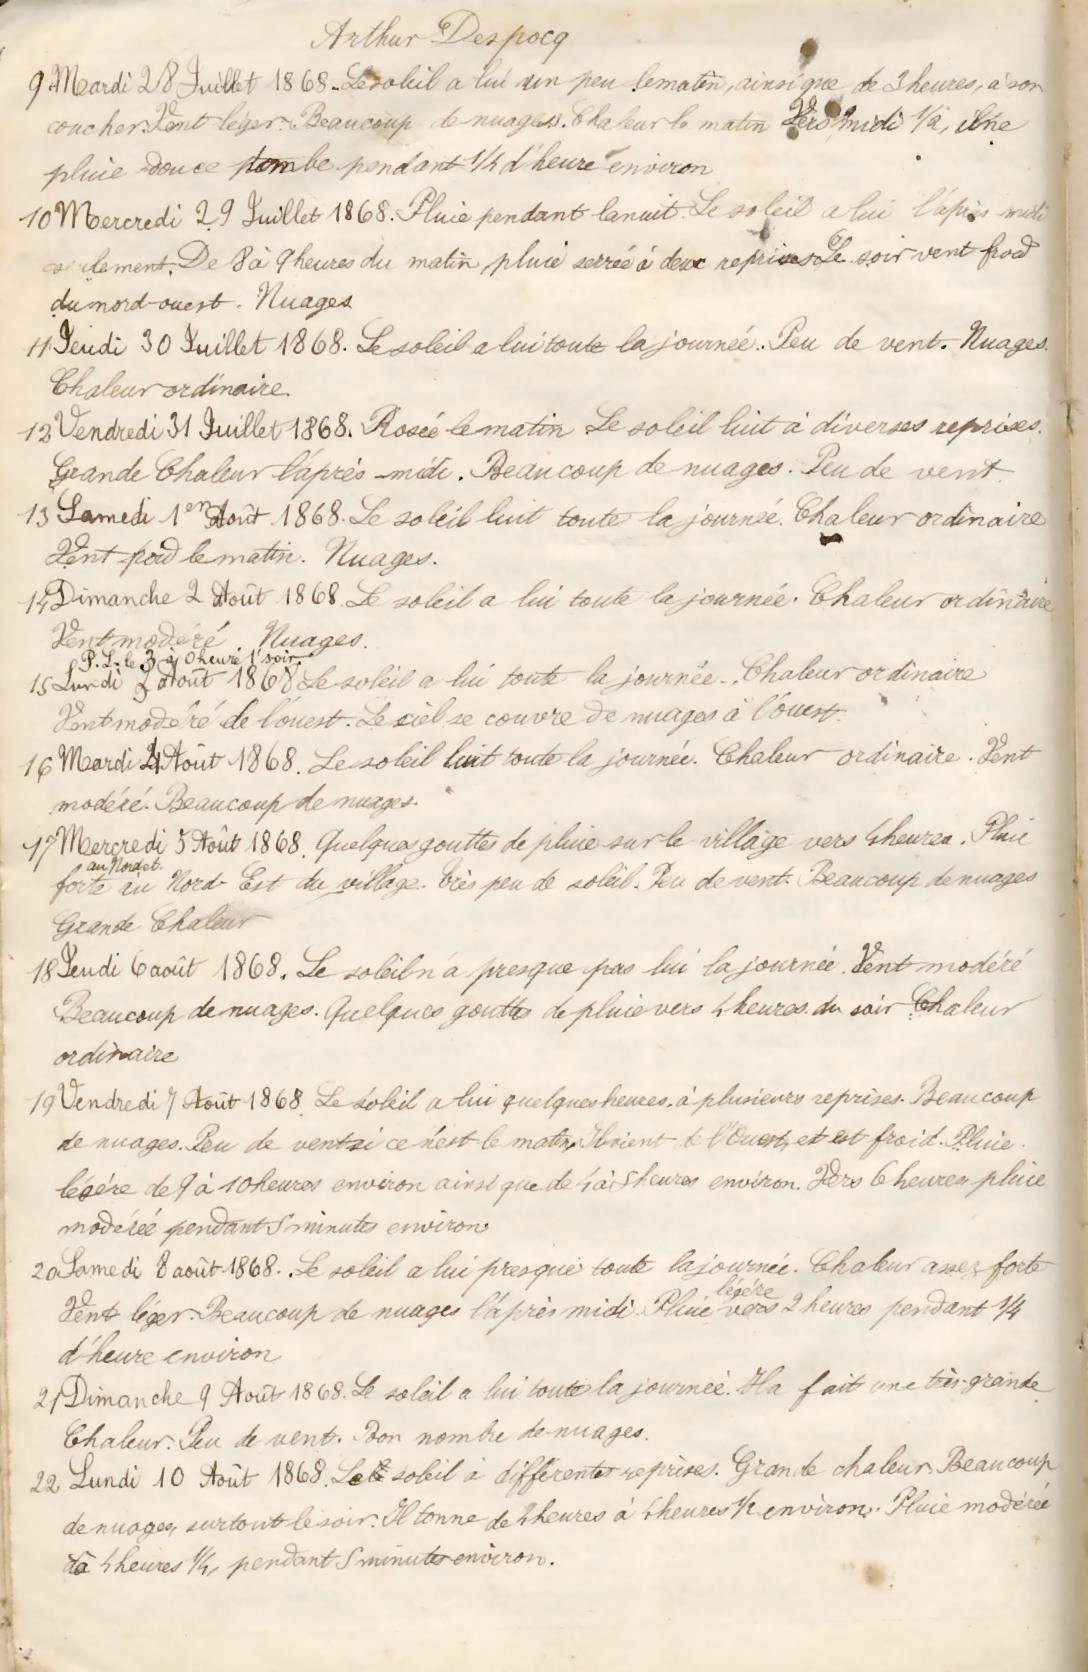 Arthur Despocq
9 Mardi 28 Juillet 1868. Le soleil a lui un peu le matin, ainsi que de 3 heures, à son
coucher. Vent léger. Beaucoup de nuages. Chaleur le matin Vers midi 1/2, une
pluie douce tombe pendant 1/4 d'heure environ
10 Mercredi 29 Juillet 1868. Pluie pendant la nuit. Le soleil a lui l'après midi
seulement. De 8 à 9 heures du matin, pluie serrée à deux reprises. Le soir vent froid
du nord-ouest. Nuages
11 Jeudi 30 Juillet 1868. Le soleil a lui toute la journée. Peu de vent. Nuages.
Chaleur ordinaire.
12 Vendredi 31 Juillet 1868. Rosée le matin Le soleil luit à diverses reprises.
Grande Chaleur l'après-midi. Beaucoup de nuages. Peu de vent.
13 Samedi 1er Août 1868. Le soleil luit toute la journée. Chaleur ordinaire
Vent froid le matin. Nuages.
14 Dimanche 2 Août 1868. Le soleil a lui toute la journée. Chaleur ordinaire
Vent modéré. Nuages.
P.L. le 3 à 0 heure 1' soir.
15 Lundi 3 août 1868 Le soleil a lui toute la journée. Chaleur ordinaire
Vent modéré de l'ouest. Le ciel se couvre de nuages à l'ouest.
16 Mardi 4 Août 1868. Le soleil luit toute la journée. Chaleur ordinaire. Vent
modéré. Beaucoup de nuages.
17 Mercredi 5 Août 1868. Quelques gouttes de pluie sur le village vers 4 heures. Pluie
au Nord et
forte au Nord-Est du village. Très peu de soleil. Peu de vent. Beaucoup de nuages
Grande Chaleur
18 Jeudi 6 août 1868. Le soleil n'a presque pas lui la journée. Vent modéré
Beaucoup de nuages. Quelques gouttes de pluie vers 4 heures du soir Chaleur
ordinaire
19 Vendredi 7 Août 1868. Le soleil a lui quelques heures, à plusieurs reprises. Beaucoup
de nuages. Peu de vent si ce n'est le matin, Il vient de l'Ouest, et est froid. Pluie
légère de 9 à 10 heures environ ainsi que de 4 à 5 heures environ. Vers 6 heures pluie
modérée pendant 5 minutes environ
20 Samedi 8 août 1868. Le soleil a lui presque toute la journée. Chaleur assez forte
légère
Vent léger. Beaucoup de nuages l'après midi Pluie vers 2 heures pendant 1/4
d'heure environ
21 Dimanche 9 Août 1868. Le soleil a lui toute la journée. Il a fait une très-grande
Chaleur. Peu de vent. Bon nombre de nuages.
22 Lundi 10 Août 1868. Le soleil à différentes reprises. Grande chaleur. Beaucoup
de nuages, surtout le soir. Il tonne de 2 heures à 4 heures 1/2 environ. Pluie modérée
à 4 heures 1/4, pendant 5 minutes environ.